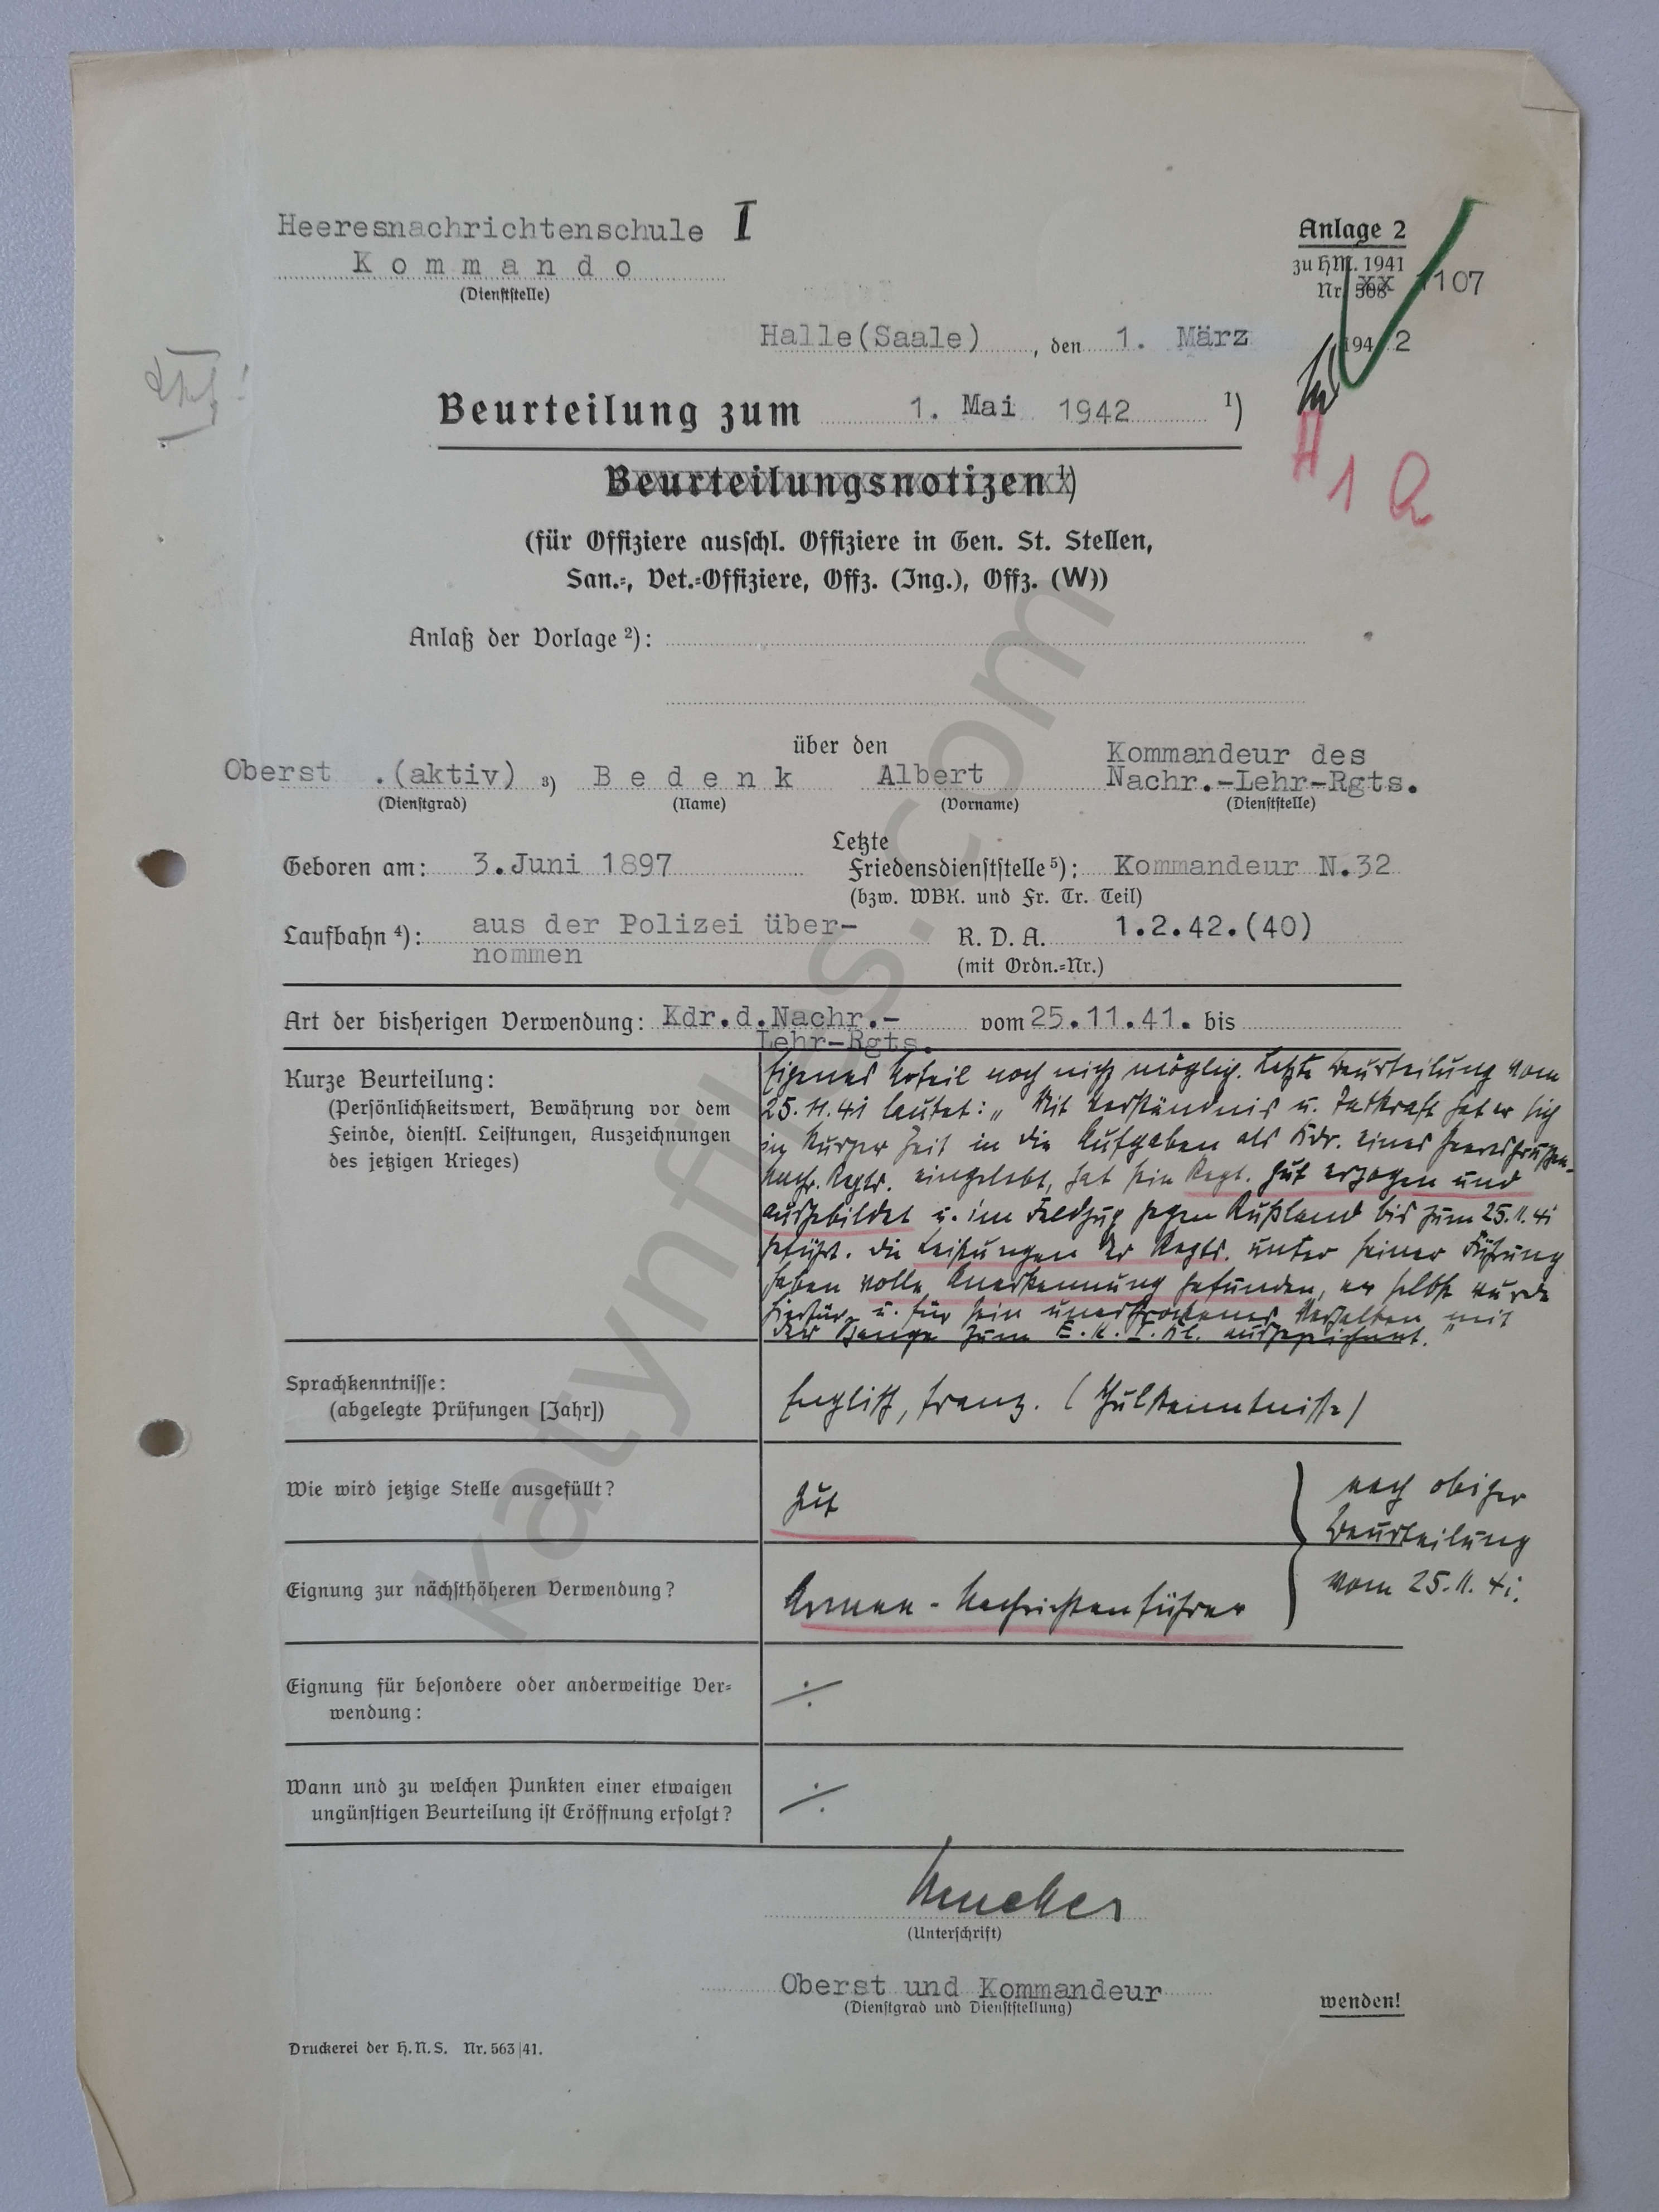 Heeresnachrichtenschule I
Kommando
(Dienststelle)
Anlage 2
zu H.M. 1941
Nr. 508 1107
Halle(Saale), den 1. März 1942
Beurteilung zum 1. Mai 1942 ¹)
Beurteilungsnotizen ¹)
H 1 a
(für Offiziere ausschl. Offiziere in Gen. St. Stellen,
San.=, Vet.=Offiziere, Offz. (Ing.), Offz. (W))
Anlaß der Vorlage ²):
über den
Oberst .(aktiv) ³) Bedenk Albert Kommandeur des
Nachr.-Lehr-Rgts.
(Dienstgrad) (Name) (Vorname) (Dienststelle)
Geboren am: 3.Juni 1897
Letzte
Friedensdienststelle ⁵): Kommandeur N.32
(bzw. WBK. und Fr. Tr. Teil)
Laufbahn ⁴): aus der Polizei über-
nommen
R. D. A. 1.2.42.(40)
(mit Ordn.=Nr.)
Art der bisherigen Verwendung: Kdr.d.Nachr.-
Lehr-Rgts.
vom 25.11.41. bis
Kurze Beurteilung:
(Persönlichkeitswert, Bewährung vor dem
Feinde, dienstl. Leistungen, Auszeichnungen
des jetzigen Krieges)
Eigenes Urteil noch nicht möglich. Letzte Beurteilung vom
25.11.41 lautet: „Mit Verständnis u. Tatkraft hat er sich
in kurzer Zeit in die Aufgaben als Kdr. eines Heeresgruppen-
Nachr. Regts. eingelebt, hat sein Regt. gut erzogen und
ausgebildet u. im Feldzug gegen Rußland bis zum 25.11.41
geführt. Die Leistungen des Regts. unter seiner Führung
haben volle Anerkennung gefunden, er selbst wurde
hierfür u. für sein unerschrockenes Verhalten mit
der Spange zum E.K. I. Kl. ausgezeichnet."
Sprachkenntnisse:
(abgelegte Prüfungen [Jahr])
Englisch, Franz. (Schulkenntnisse)
Wie wird jetzige Stelle ausgefüllt?
gut
Eignung zur nächsthöheren Verwendung?
Armee-Nachrichtenführer
nach obiger
Beurteilung
vom 25.11.41.
Eignung für besondere oder anderweitige Ver=
wendung:
./.
Wann und zu welchen Punkten einer etwaigen
ungünstigen Beurteilung ist Eröffnung erfolgt?
./.
(Unterschrift)
Oberst und Kommandeur
(Dienstgrad und Dienststellung)
wenden!
Druckerei der H.N.S. Nr. 563|41.
katynfiles.com